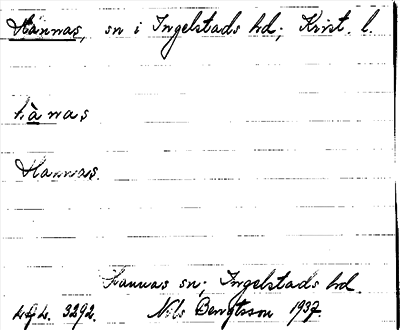 Hannas, sn i Ingelstads hd; Krist. l.
hànas
Hannas.
Hannas sn; Ingelstads hd.
Nils Bengtsson 1937.
3292.